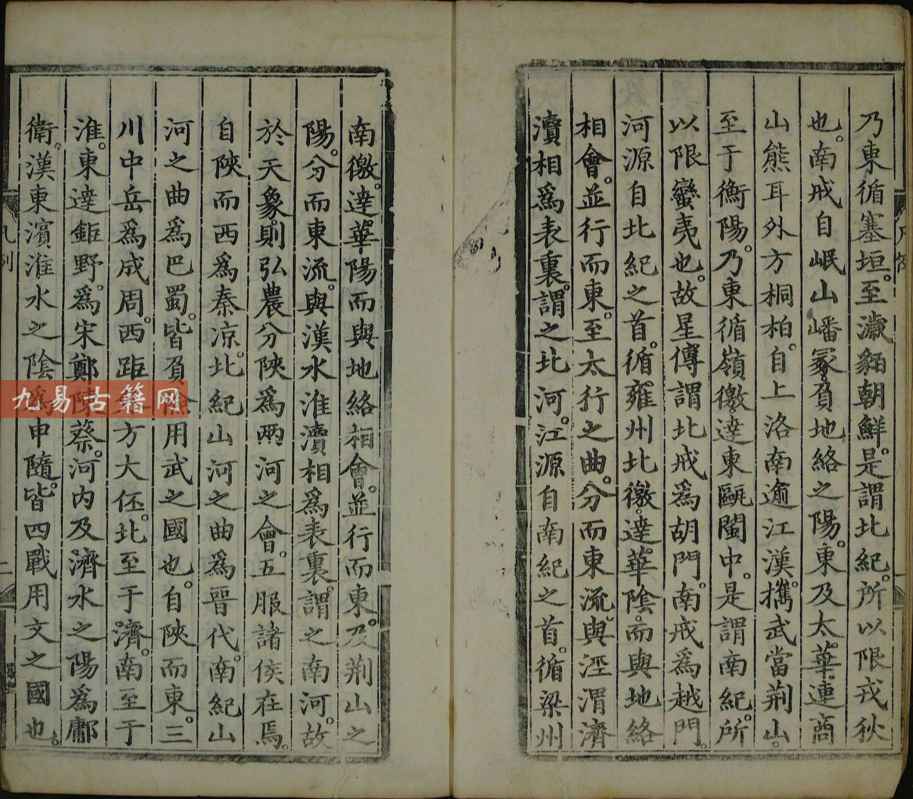 乃東循塞垣。至濊貊朝鮮。是謂北紀。所以限戎狄
也。南戒自岷山嶓冢。負地絡之陽。東及太華。連商
山熊耳外方桐柏。自上洛南逾江漢。攜武當荆山。
至于衡陽。乃東循嶺徼。達東甌閩中。是謂南紀。所
以限蠻夷也。故星傳謂北戒爲胡門。南戒爲越門。
河源自北紀之首。循雍州北徼。達華陰。而與地絡
相會。並行而東。至太行之曲。分而東流。與涇渭濟
瀆相爲表裏。謂之北河。江源自南紀之首。循梁州
南徼。達華陽而與地絡相會。並行而東。及荆山之
陽。分而東流。與漢水淮瀆相爲表裏。謂之南河。故
於天象。則弘農分陝爲兩河之會。五服諸侯在焉。
自陝而西爲秦凉。北紀山河之曲爲晉代。南紀山
河之曲爲巴蜀。皆負險用武之國也。自陝而東。三
川中岳爲成周。西距外方大伾。北至于濟。南至于
淮。東達鉅野。爲宋鄭陳蔡。河内及濟水之陽爲鄘
衛。漢東濱淮水之陰爲申隨。皆四戰用文之國也。
凡例
二
九易古籍网